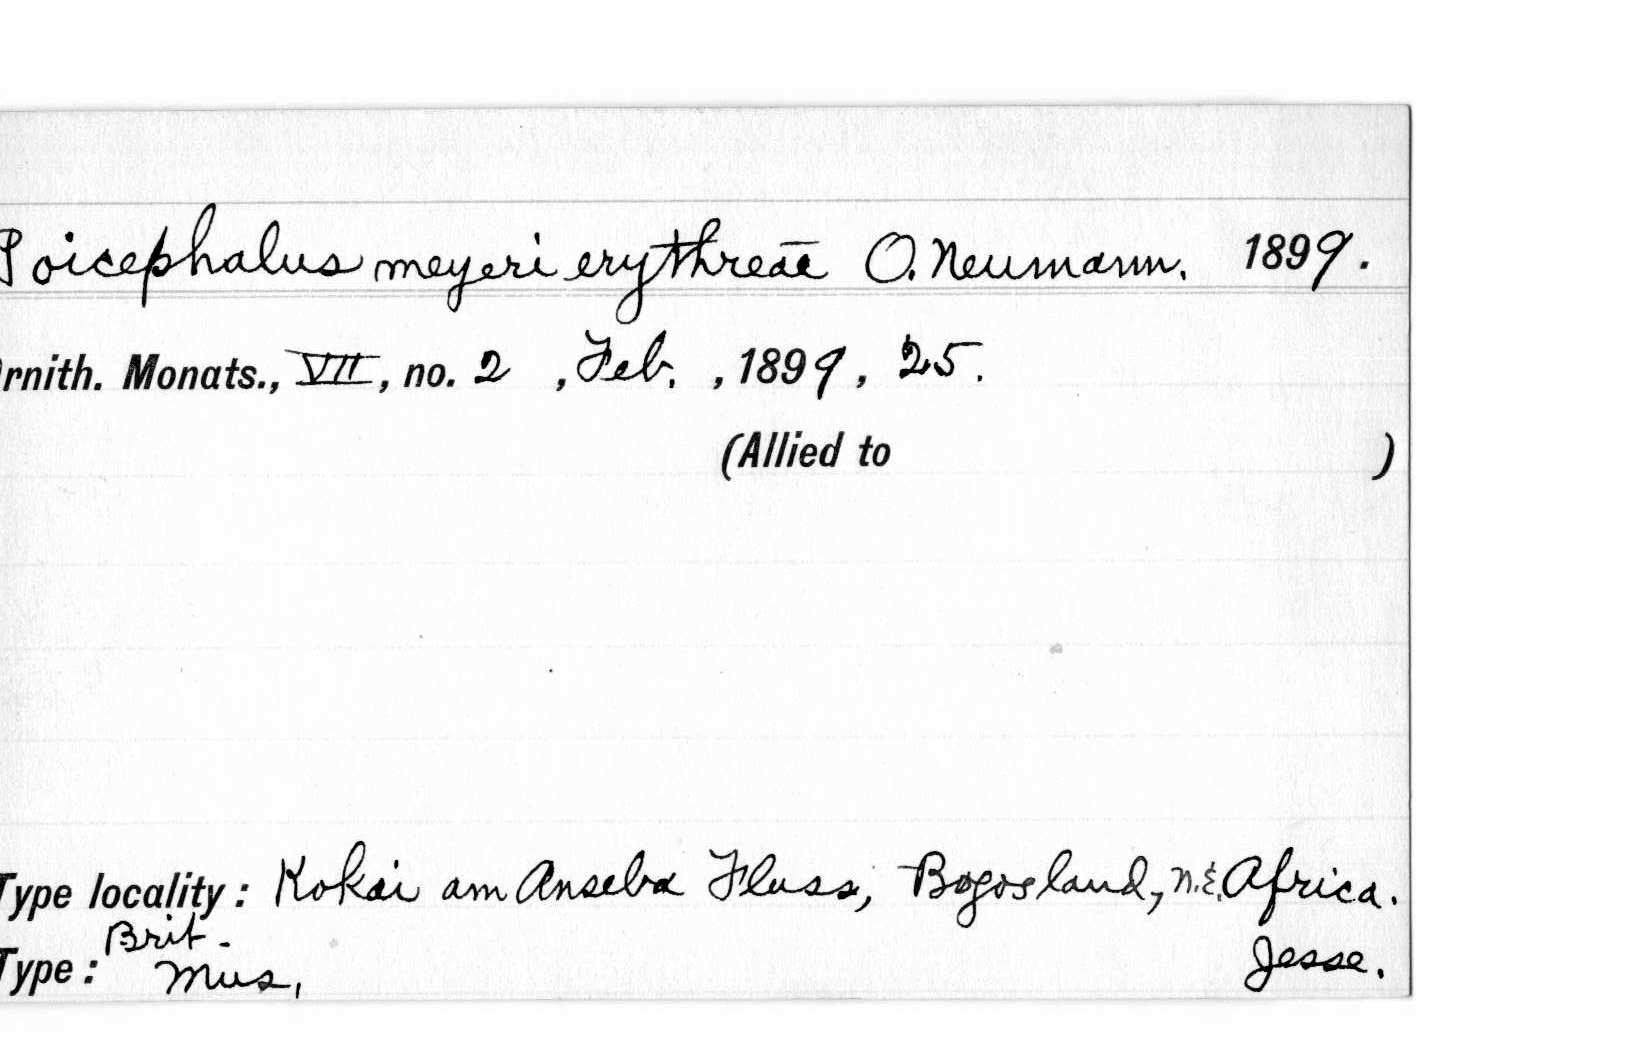 Poicephalus meyeri erythreae O. Neumann. 1899.
Ornith. Monats., VII, no. 2 , Feb. , 1899, 25.
(Allied to )
Type locality: Kokai am Anseba Fluss, Bogosland, N.E. Africa.
Type: Brit. Mus. Jesse.